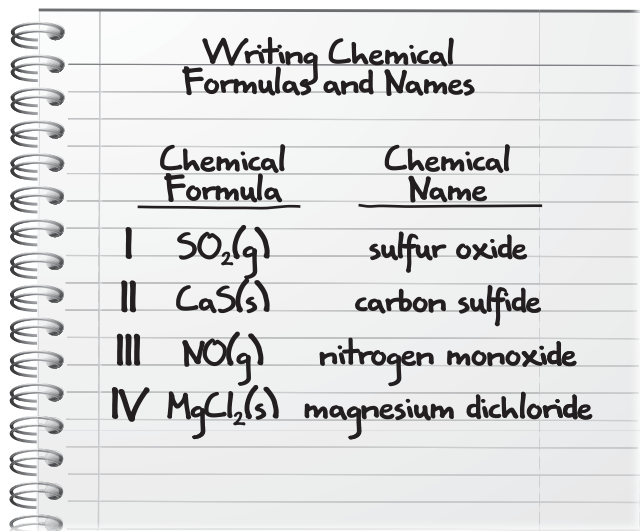 Writing Chemical
Formulas and Names
Chemical Formula Chemical Name
I SO₂(g) sulfur oxide
II CaS(s) carbon sulfide
III NO(g) nitrogen monoxide
IV MgCl₂(s) magnesium dichloride